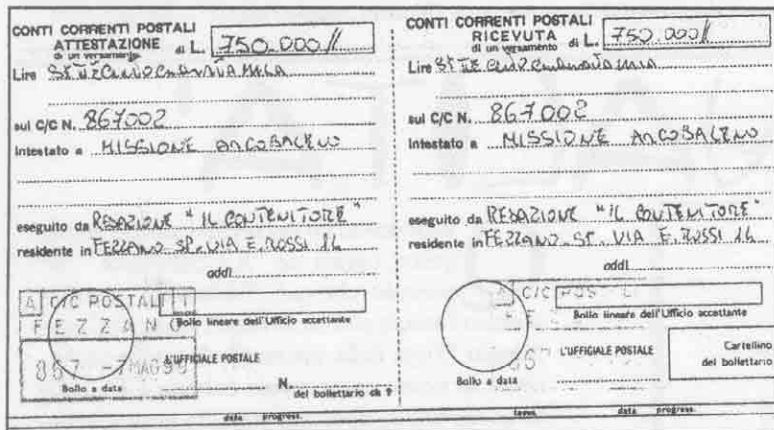 CONTI CORRENTI POSTALI
ATTESTAZIONE
di un versamento di L. 750.000//
Lire SETTECENTOCINQUANTAMILA
sul C/C N. 867002
Intestato a MISSIONE ARCOBALENO
eseguito da REDAZIONE "IL CONTENITORE"
residente in FEZZANO SP. VIA E. ROSSI 14
addì
A C/C POSTALI T
FEZZANO
Bollo lineare dell'Ufficio accettante
L'UFFICIALE POSTALE
857 -7 MAG 99
Bollo a data
N.
del bollettario ch 9
data progress.
CONTI CORRENTI POSTALI
RICEVUTA
di un versamento di L. 750.000//
Lire SETTECENTOCINQUANTAMILA
sul C/C N. 867002
Intestato a MISSIONE ARCOBALENO
eseguito da REDAZIONE "IL CONTENITORE"
residente in FEZZANO. SP. VIA E. ROSSI 14
addì
A C/C POS
Bollo lineare dell'Ufficio accettante
L'UFFICIALE POSTALE
Cartellino
del bollettario
Bollo a data
tassa data progress.